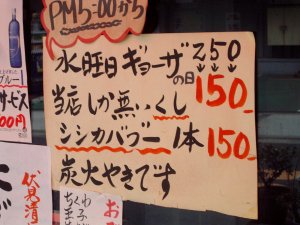 PM5:00から
水曜日ギョーザの日 250 150-
当店しか無いくし
シシカバブー 1本150-
炭火やきです
ブルー
サービス
00円
伏見清